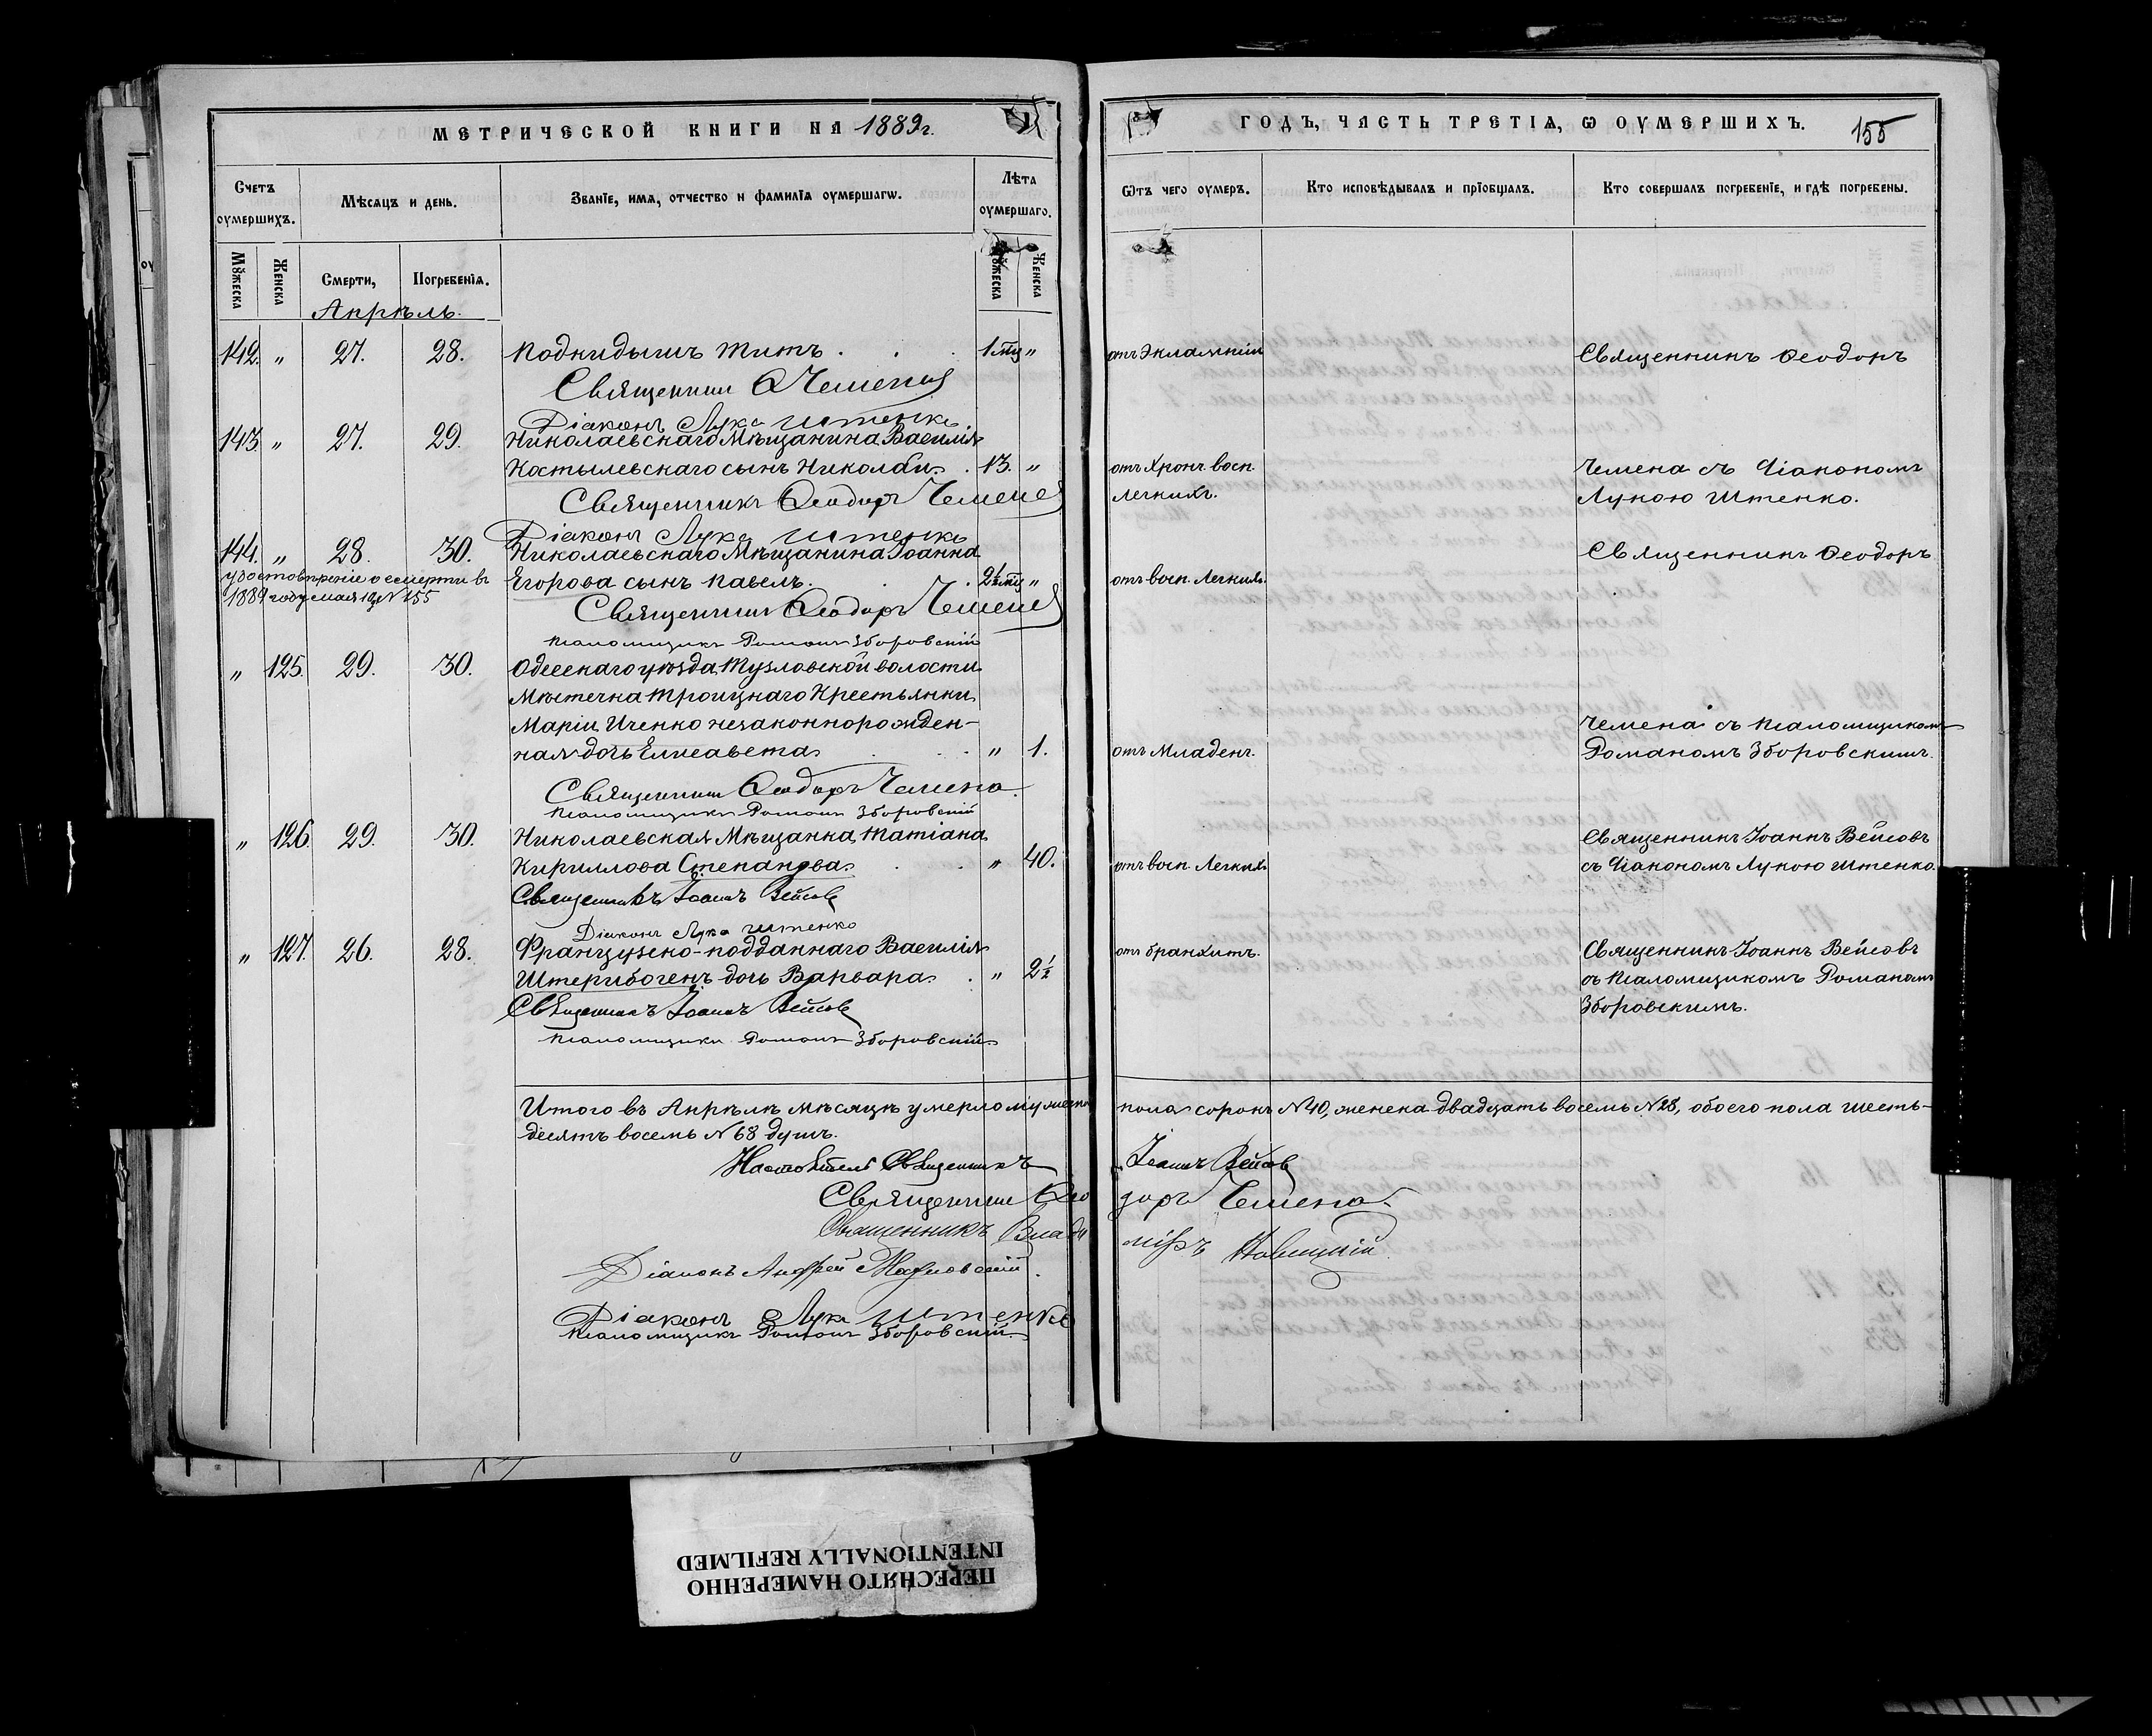 МЕТРИЧЕСКОЙ КНИГИ НА 1889 г.
Счетъ оумершихъ.
Мѣсяцъ и день.
Званїе, имѧ, отчество и фамилїѧ оумершагѡ.
Лѣта оумершаго.
Мꙋжеска
Женска
Смерти,
Погребенїѧ.
Мꙋжеска
Женска
Апрѣль.
142. " 27. 28. Подкидышъ Титъ . . . 1 мц "
Священникъ Ѳ Чемена
Діаконъ Лука Штенко
143. " 27. 29. Николаевскаго Мѣщанина Василія
Костылевскаго сынъ Николай . 13. "
Священникъ Ѳеодоръ Чемена
Діаконъ Лука Штенко
144. " 28. 30. Николаевскаго Мѣщанина Іоанна
Егорова сынъ Павелъ . . 2½ мц "
удостовѣреніе о смерти въ
1889 году мая 19 № 155
Священникъ Ѳеодоръ Чемена
Псаломщикъ Романъ Зборовскій
" 125. 29. 30. Одесскаго уѣзда, Тузловской волости
Мѣстечка Троицкаго Крестьянки
Маріи Иченко незаконнорожден-
ная дочь Елисавета . . " 1.
Священникъ Ѳеодоръ Чемена
Псаломщикъ Романъ Зборовскій
" 126. 29. 30. Николаевская Мѣщанка, Татіана
Кириллова Степанова . . " 40.
Священникъ Іоаннъ Вейсовъ
Діаконъ Лука Штенко
" 127. 26. 28. Французско-подданнаго Василія
Штерибогенъ дочь Варвара . " 2½
Священникъ Іоаннъ Вейсовъ
Псаломщикъ Романъ Зборовскій
Итого въ Апрѣлѣ мѣсяцѣ умерло мужеска
десятъ восемь № 68 душъ.
Настоятель Священникъ
Священникъ Ѳео
Священникъ Влади
Діаконъ Андрей
Діаконъ Лука Штенко
Псаломщикъ Романъ Зборовскій
ГОДЪ, ЧАСТЬ ТРЕТІѦ, Ѡ ОУМЕРШИХЪ. 155
Ѿтъ чего оумеръ.
Кто исповѣдывалъ и прїобщалъ.
Кто совершалъ погребенїе, и гдѣ погребены.
отъ Эклампсіи
Священникъ Ѳеодоръ
отъ Хрон. восп. Чемена съ Діакономъ
легкихъ. Лукою Штенко.
Священникъ Ѳеодоръ
отъ восп. Легкихъ.
Чемена съ Псаломщикомъ
отъ Младенч. Романомъ Зборовскимъ.
Священникъ Іоаннъ Вейсовъ
отъ восп. Легкихъ съ Діакономъ Лукою Штенко.
отъ бранхитъ. Священникъ Іоаннъ Вейсовъ
съ Псаломщикомъ Романомъ
Зборовскимъ.
пола сорокъ № 40, женска двадцать восемь № 28, обоего пола шесть-
Іоаннъ Вейсовъ
доръ Чемена
міръ Новицкій
ПЕРЕСНЯТО НАМЕРЕННО
INTENTIONALLY REFILMED